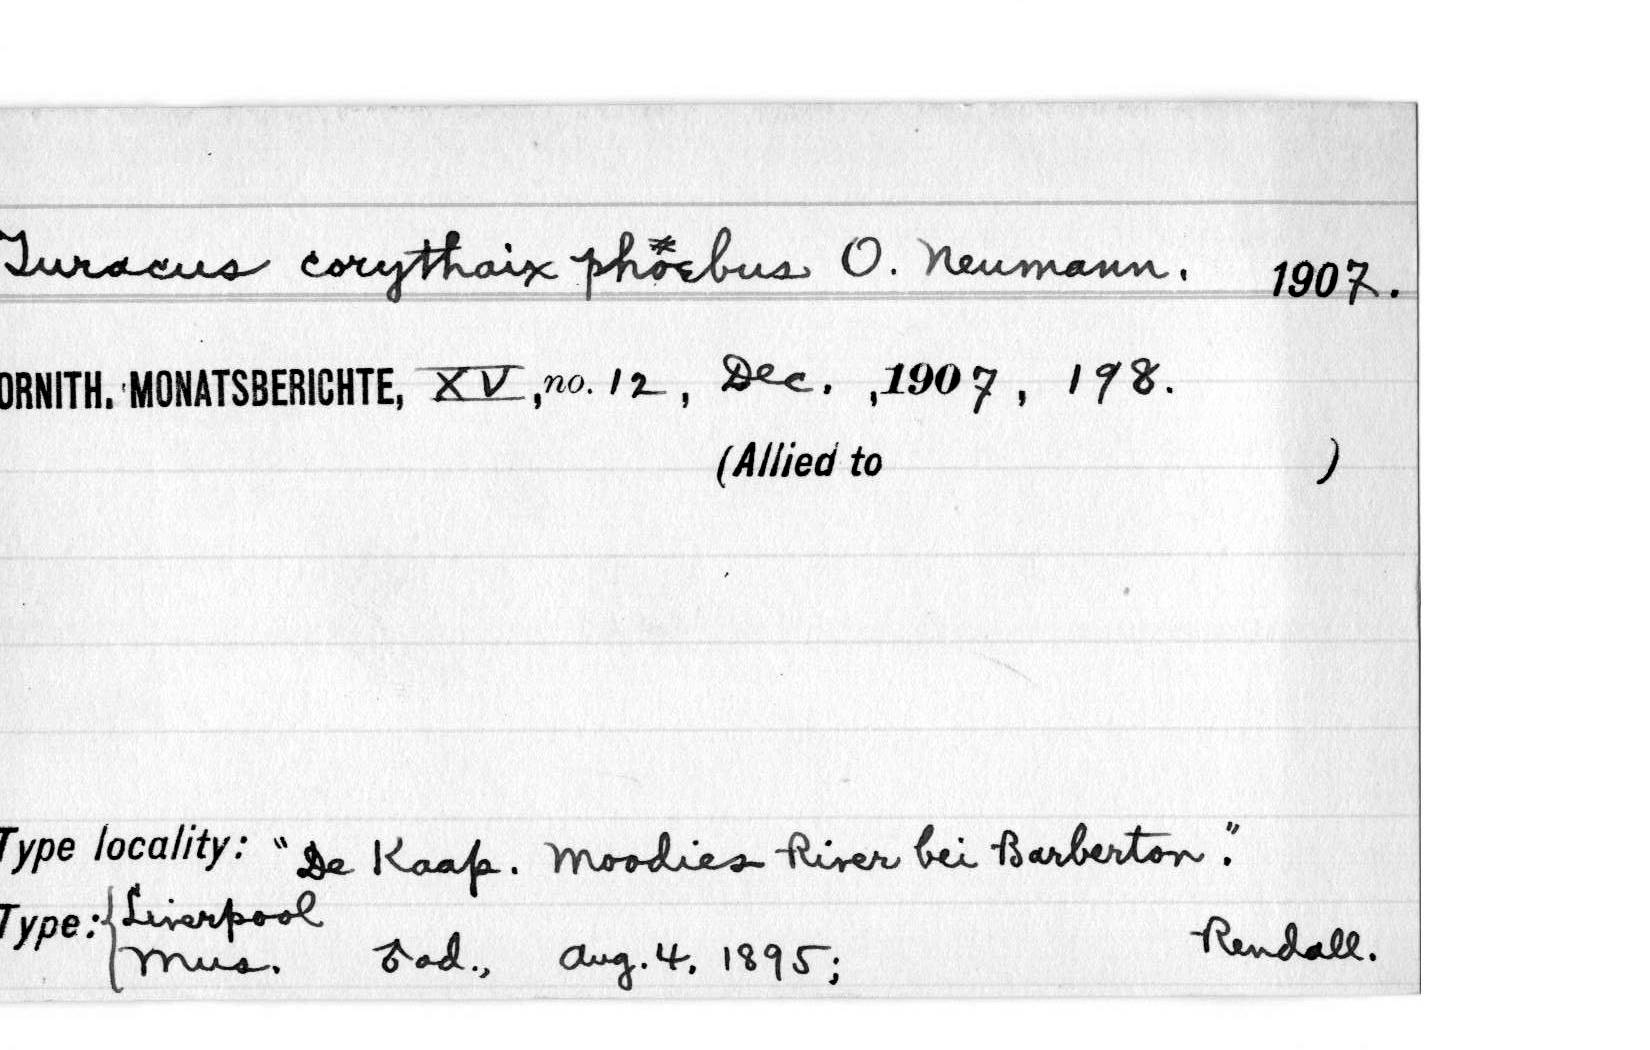 Turacus corythaix phoebus O. Neumann. 1907.
ORNITH. MONATSBERICHTE, XV, no. 12, Dec., 1907, 198.
(Allied to )
Type locality: "De Kaap. Moodies River bei Barberton."
Type: { Liverpool
Mus. ♂ ad., Aug. 4, 1895; Rendall.